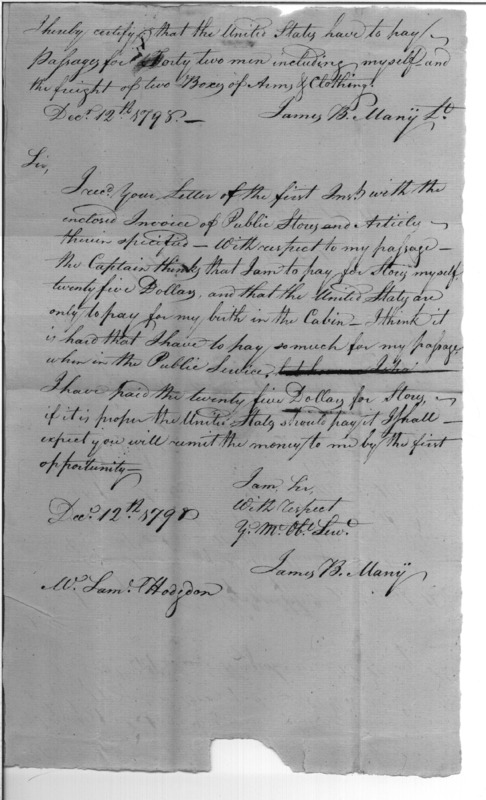 I hereby certify that the United States have to pay
Passages for Forty two men including myself and
the freight of two Boxes of Arms & Clothing.
Decr. 12th 1798.— James B. Many Lt.
Sir,
I recd. Your Letter of the first Inst. with the
enclosed Invoice of Public Stores and Articles
therein specified — With respect to my passage —
the Captain thinks that I am to pay for Stores myself
twenty five Dollars, and that the United States are
only to pay for my birth in the Cabin — I think it
is hard that I have to pay so much for my passage
when in the Public Service,
I have paid the twenty five Dollars for Stores,
if it is proper the United States should pay it I shall —
expect you will remit the money to me by the first
opportunity —
I am Sir,
With respect
Decr. 12th 1798 Yr. Mo. Obt. Servt.
James B. Many
Mr. Saml. Hodgdon